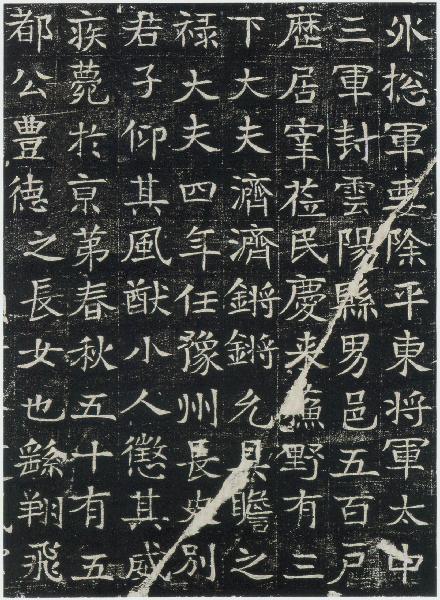 外捴軍要除平東将軍太中
三軍封雲陽縣男邑五百戶
歷居宰莅民慶来蘓野有三
下大夫濟濟鏘鏘允具瞻之
禄大夫四年任豫州長史別
君子仰其風猷小人懲其威
疾薨於京苐春秋五十有五
都公豐德之長女也翔飛